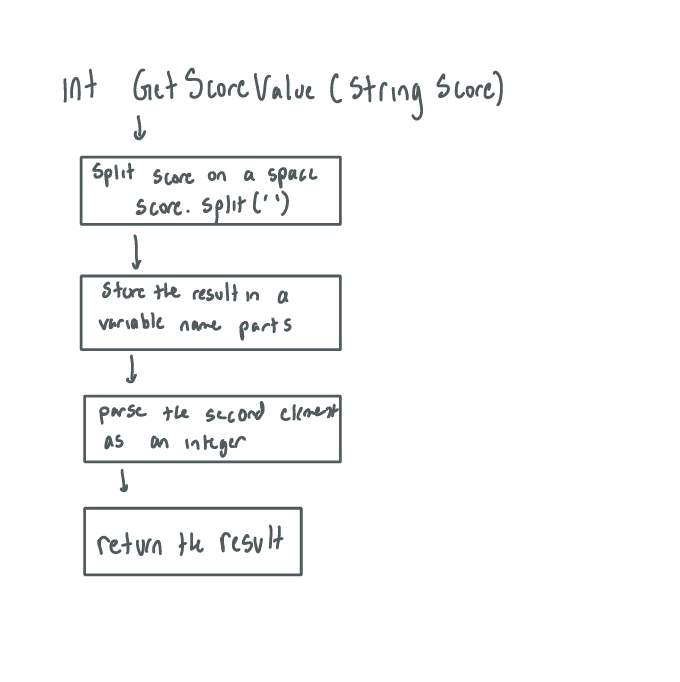 int GetScoreValue (String Score)
Split score on a space
score. split(' ')
Store the result in a
variable name parts
parse the second element
as an integer
return the result